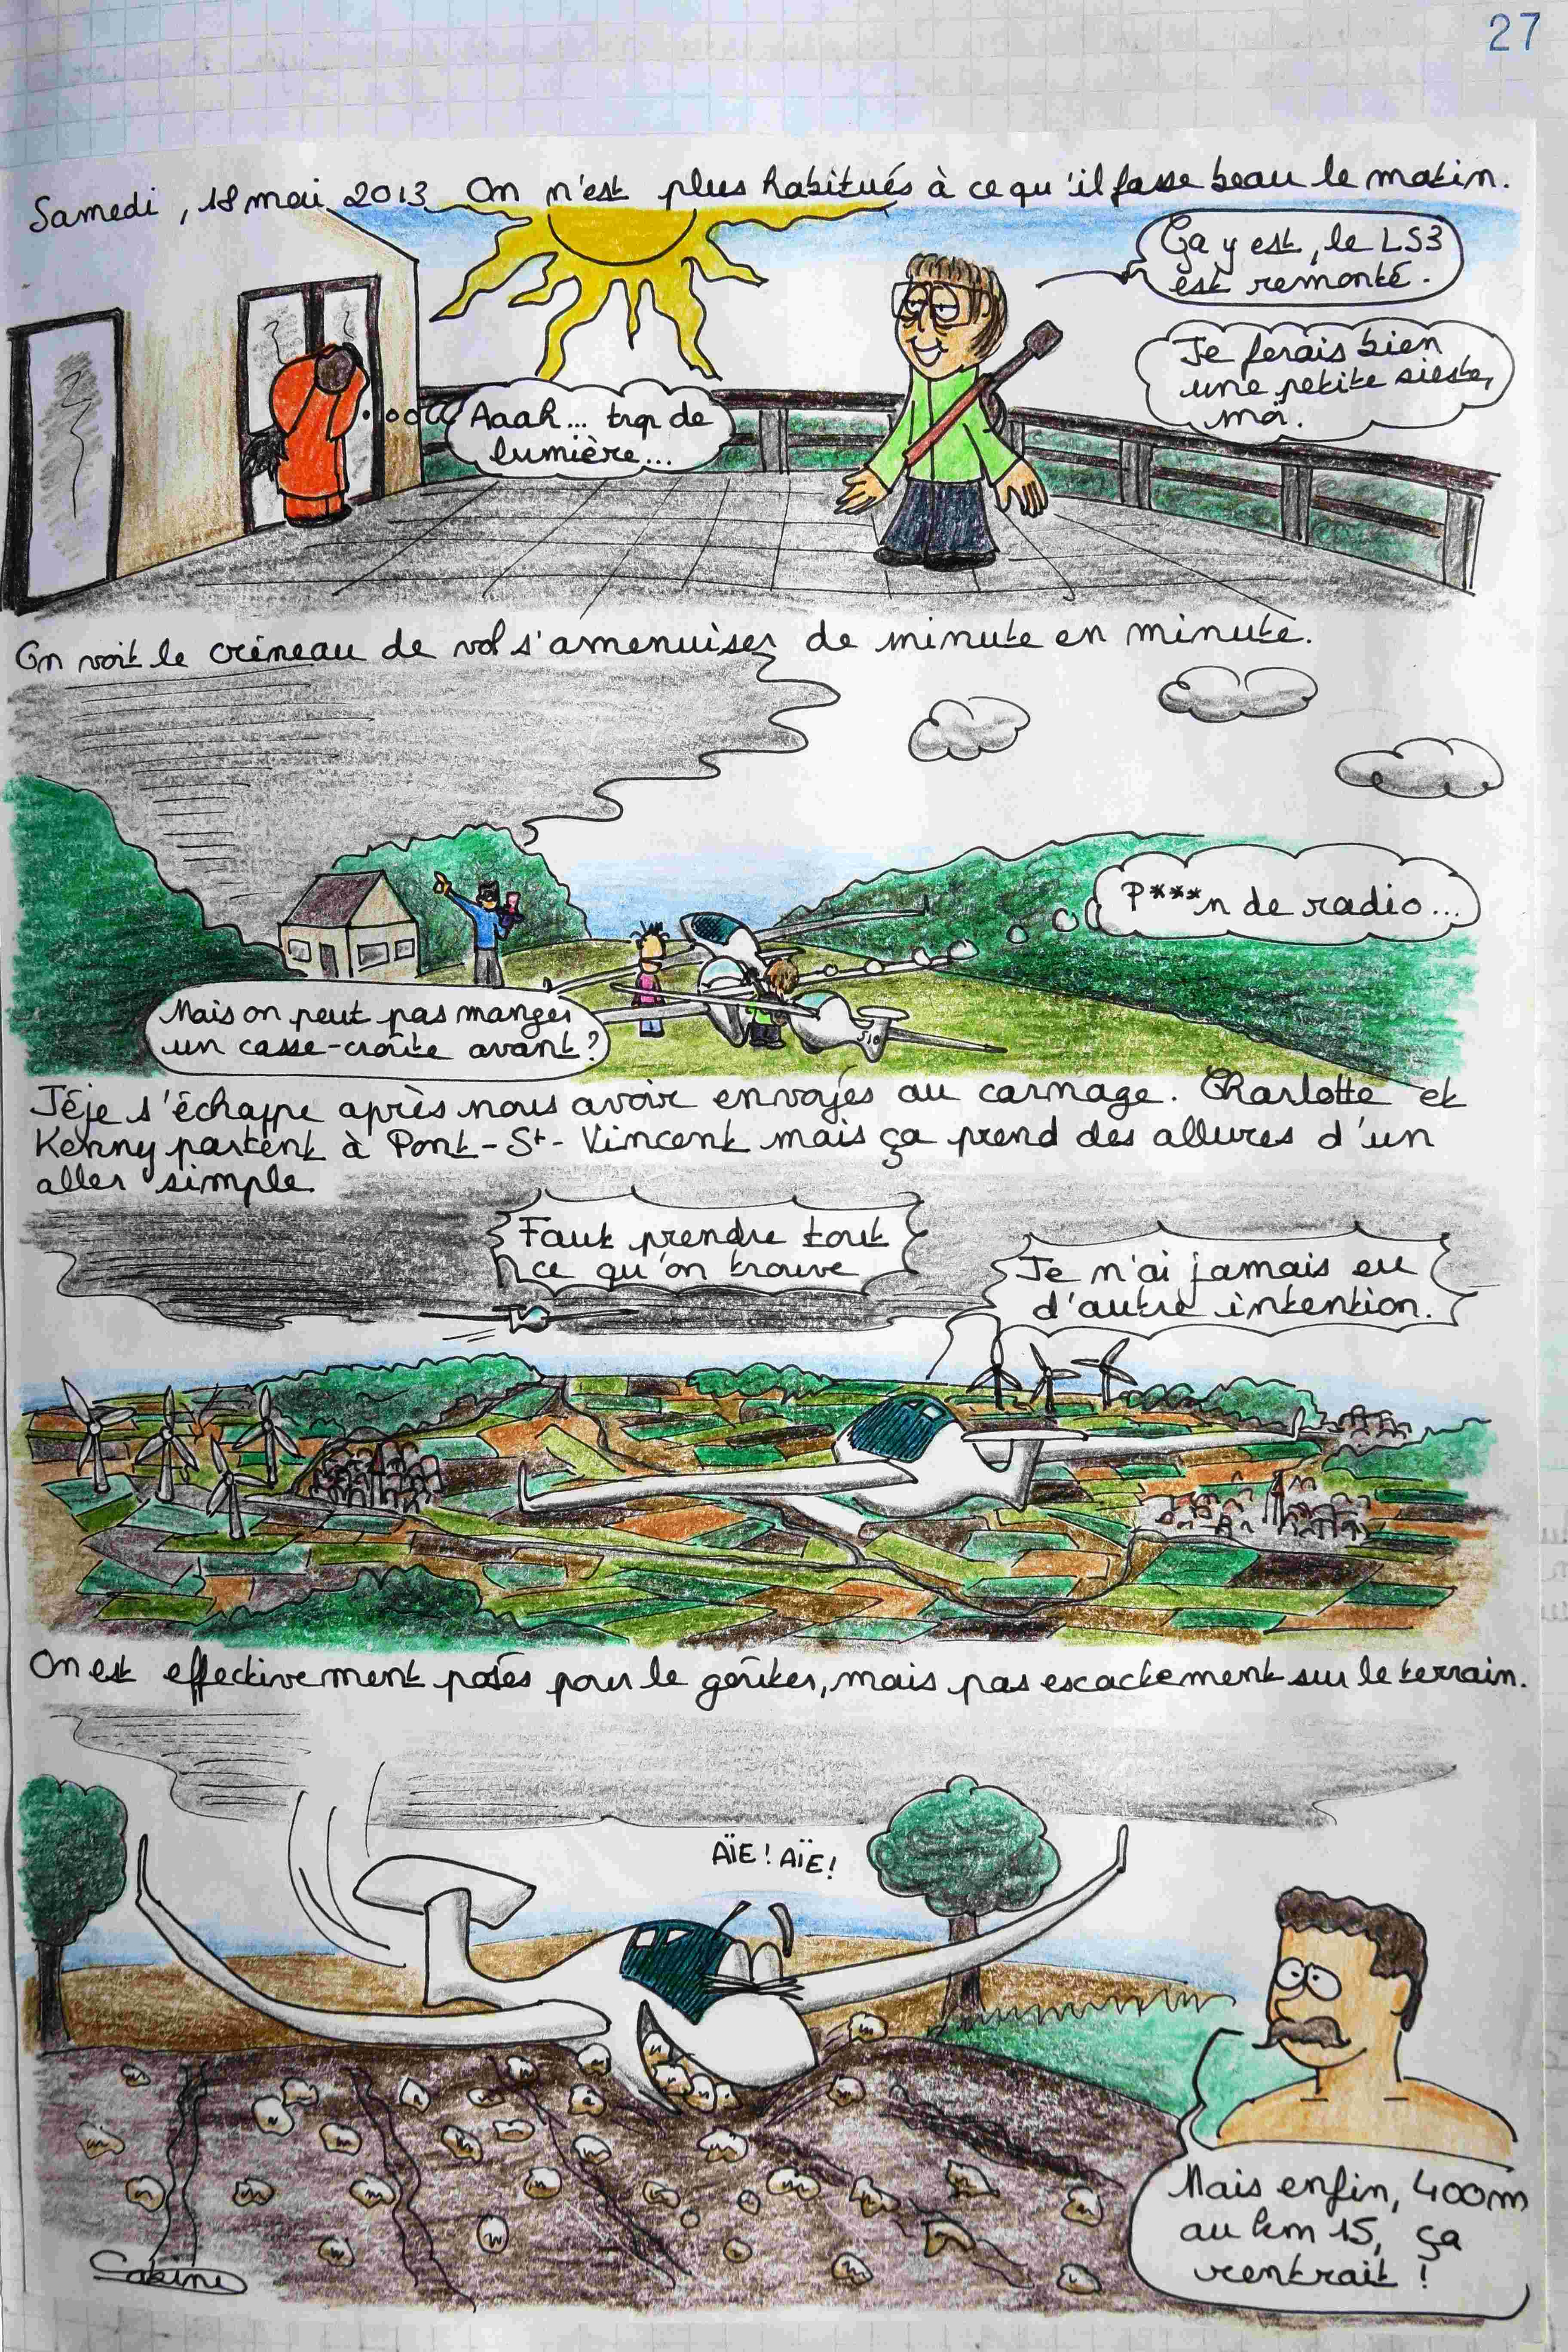 27
Samedi, 18 mai 2013. On n'est plus habitués à ce qu'il fasse beau le matin.
Ça y est, le LS3
est remonté.
Je ferais bien
une petite sieste,
moi.
Aaah... trop de
lumière...
On voit le créneau de vol s'amenuiser de minute en minute.
P***n de radio...
Mais on peut pas manger
un casse-croûte avant?
Jéje s'échappe après nous avoir envoyés au carnage. Charlotte et
Kenny partent à Pont-St-Vincent mais ça prend des allures d'un
aller simple.
Faut prendre tout
ce qu'on trouve
Je n'ai jamais eu
d'autre intention.
On est effectivement posés pour le goûter, mais pas exactement sur le terrain.
AÏE! AÏE!
Mais enfin, 400m
au km 15, ça
rentrait !